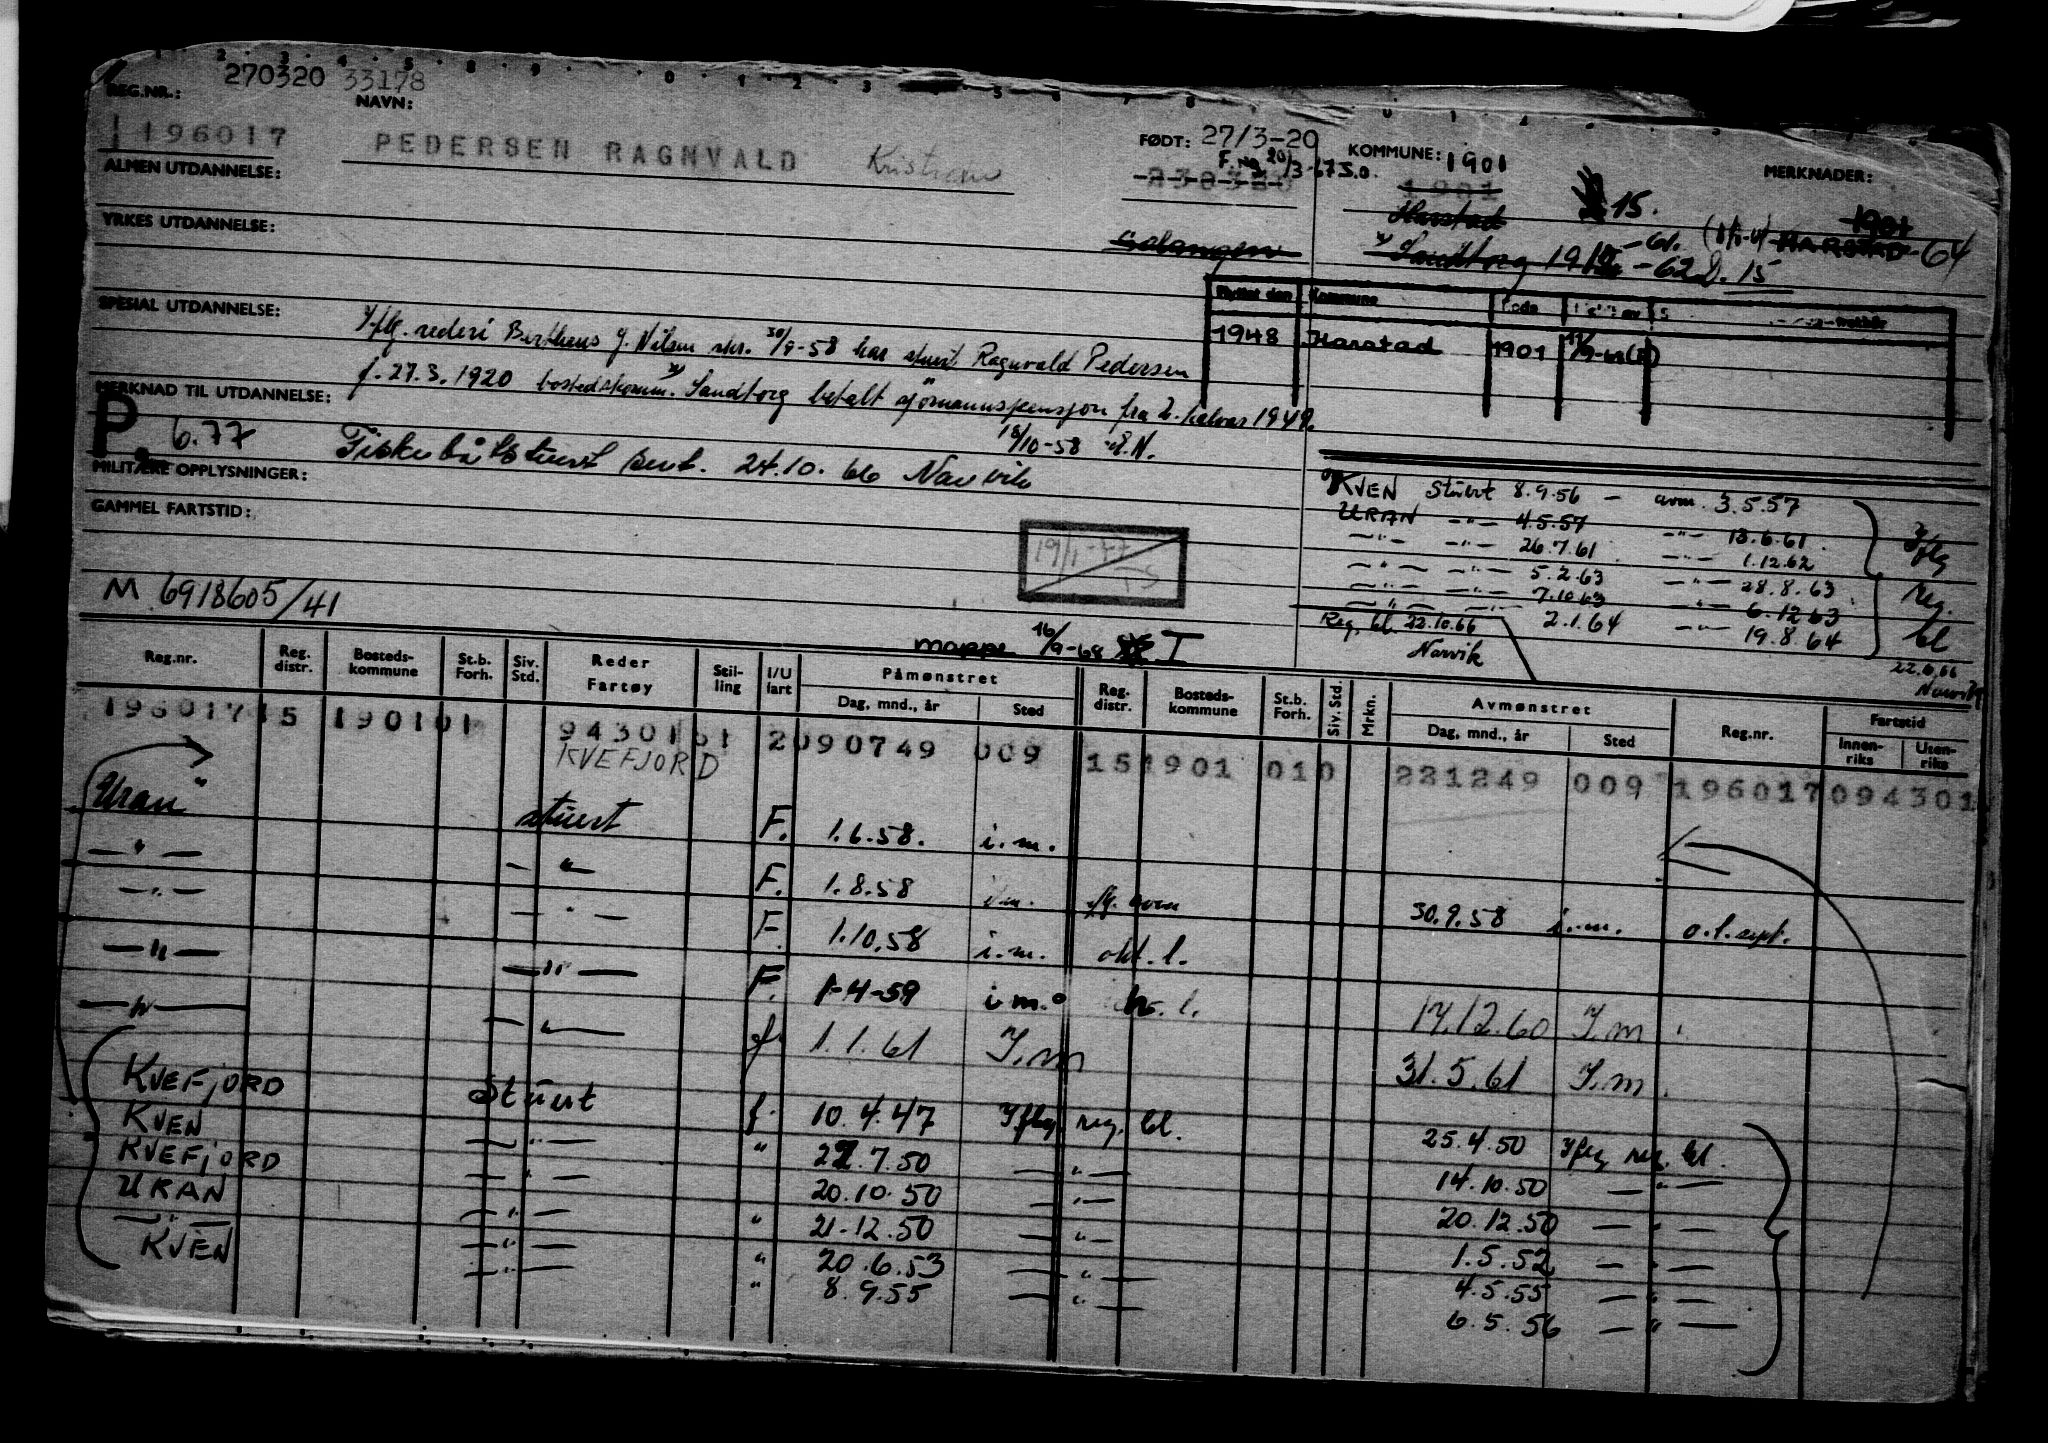 270320 33178
REG.NR.: NAVN: FØDT: 27/3-20 KOMMUNE: 1901 MERKNADER:
196017 PEDERSEN RAGNVALD F.nr 20/3-67 S.O.
1901
ALMEN UTDANNELSE: Harstad 15. 1901
YRKES UTDANNELSE: Salangen Sandtorg 19 -62 15 HARSTAD 64
Flyttet den Kommune Kode
1948 Harstad 1901
SPESIAL UTDANNELSE: Iflg. rederi Bertheus J. Nilsen skr. 30/9-58 har stuert Ragnvald Pedersen
f. 27.3.1920 bostedskomm. Sandtorg betalt sjømannspensjon fra 2. halvår 1949.
MERKNAD TIL UTDANNELSE: 18/10-58
P. 6.77 Fiskebåtstuert 24.10.66 Narvik
MILITÆRE OPPLYSNINGER:
GAMMEL FARTSTID:
KVEN Stuert 8.9.56 — avm. 3.5.57
URAN —"— 4.5.57 —"— 18.6.61.
—"— —"— 26.7.61 —"— 1.12.62
—"— —"— 5.2.63 —"— 28.8.63
—"— —"— 7.10.63 —"— 6.12.63
—"— —"— 2.1.64 —"— 19.8.64
Iflg reg. bl
Reg. bl. 22.10.66
Narvik
22.6.66
Narvik
19/1-77
TS
M 6918605/41
mappe 16/9-68 I
Reg.nr. Reg. distr. Bosteds-kommune St.b. Forh. Siv. Std. Reder Fartøy Stil-ling I/U fart Påmønstret Dag, mnd., år Sted Reg. distr. Bosteds-kommune St.b. Forh. Siv. Std. Mrkn. Avmønstret Dag, mnd., år Sted Reg.nr. Fartstid Innen-riks Uten-riks
196017 15 1901 01 9430151 2 090749 009 15 1901 010 221249 009 196017 094301
KVEFJORD
Uran stuert F. 1.6.58. i.m.
—"— —"— F. 1.8.58 30.9.58 i.m. o.l. sept.
—"— —"— F. 1.10.58 i.m. okt. l.
—"— —"— F. 1-4-59 i.m. 17.12.60 I.m.
—"— —"— f. 1.1.61 I.m 31.5.61 I.m.
KVEFJORD Stuert f. 10.4.47 Iflg. reg. bl. 25.4.50 Iflg reg. bl.
KVEN —"— " 22.7.50 —"— 14.10.50 —"—
KVEFJORD —"— 20.10.50 —"— 20.12.50 —"—
URAN —"— " 21.12.50 —"— 1.5.52 —"—
—"— —"— " 20.6.53 —"— 4.5.55 —"—
KVEN —"— " 8.9.55 —"— 6.5.56 —"—